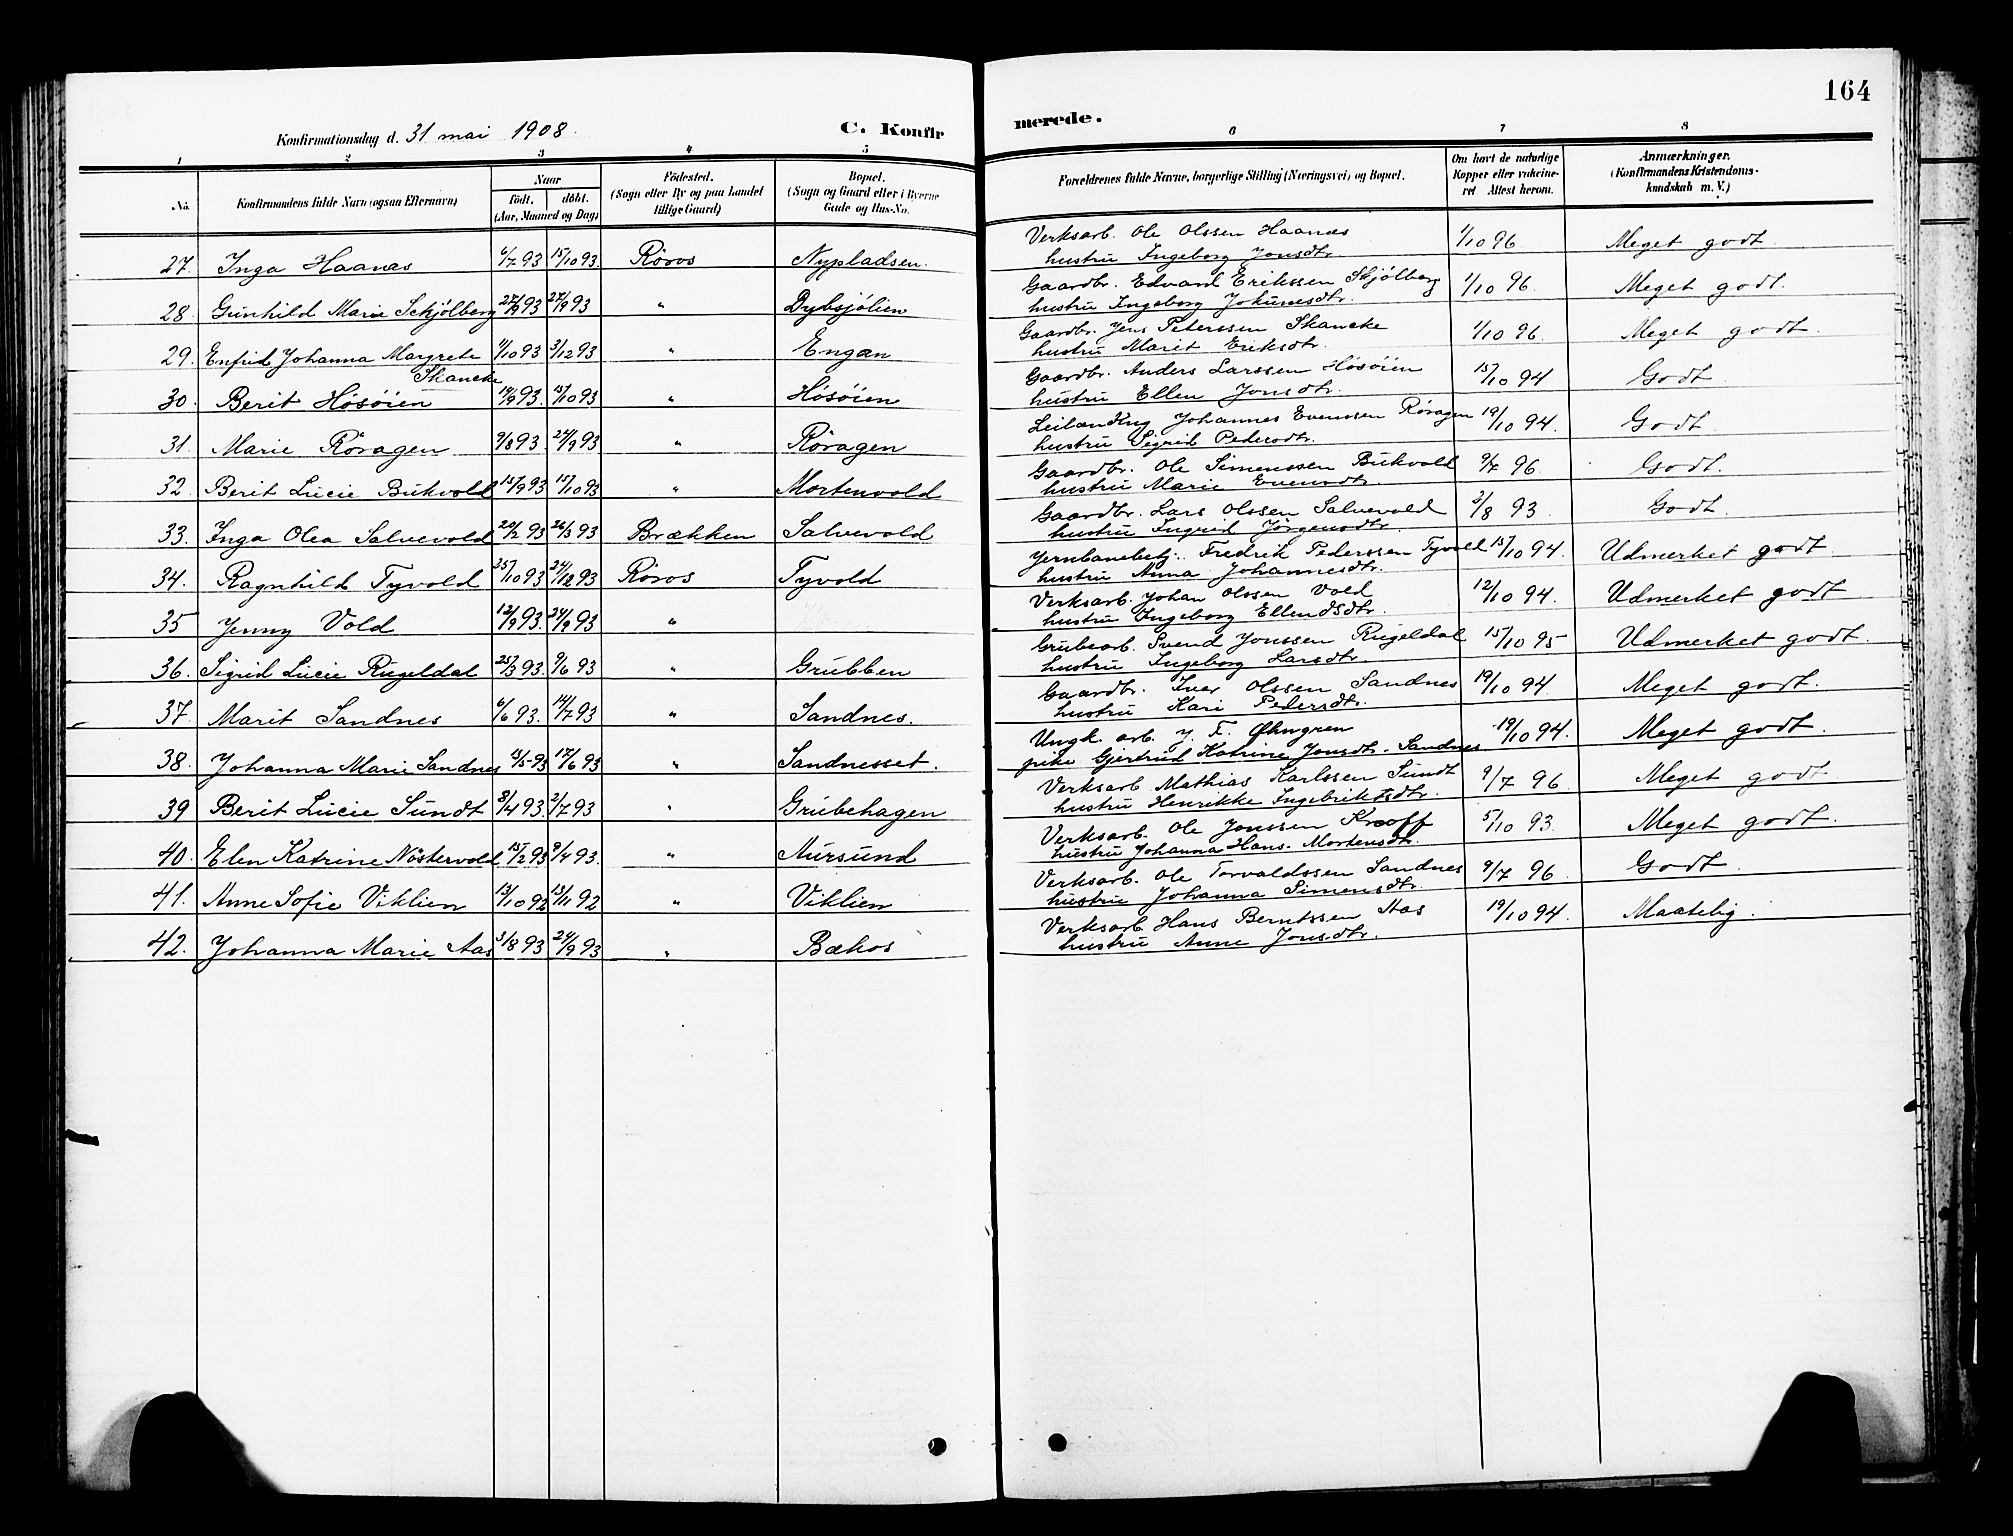 164
Konfirmationsdag d. 31 mai 1908. C. Konfir merede.
1 2 3 4 5 6 7 8
No. Konfirmandens fulde Navn (ogsaa Efternavn) Naar født. døbt. (Aar, Maaned og Dag) Fødested. (Sogn eller By og paa Landet tillige Gaard) Bopæl. (Sogn og Gaard eller i Byerne Gade og Hus-No. Forældrenes fulde Navne, borgerlige Stilling (Næringsvei) og Bopæl. Om havt de naturlige Kopper eller vaccineret Attest herom. Anmærkninger. (Konfirmandens Kristendomskundskab m. V.)
27. Inga Haanæs 6/7 93 15/10 93. Røros Nypladsen. Verksarb. Ole Olssen Haanæs 1/10 96 Meget godt
hustru Ingeborg Jonsdtr.
28 Gunhild Marie Schjølberg 27/7 93 27/9 93 " Dybsjølien Gaardbr. Edvard Erikssen Skjølberg 1/10 96. Meget godt.
hustru Ingeborg Jokumsdtr.
29. Enfrid Johanna Margrete Skancke 4/10 93 3/12 93 " Engan Gaardbr. Jens Peterssen Skancke 1/10 96. Meget godt.
hustru Marit Eriksdtr.
30. Berit Høsøien 14/9 93. 15/10 93 " Høsøien Gaardbr. Anders Larssen Høsøien 15/10 94 Godt
hustru Ellen Jonsdtr.
31. Marie Røragen 9/8 93. 24/9 93 " Røragen Leilænding Johannes Evenssen Røragen 19/10 94. Godt
hustru Sigrid Pedersdtr.
32. Berit Lucie Bukvold 15/9 93 15/10 93 " Mortenvold Gaardbr. Ole Simenssen Bukvold 9/7 96. Godt.
hustru Marie Evensdtr.
33. Inga Olea Salvevold 20/2 93 26/3 93 Brækken Salvevold Gaardbr. Lars Olssen Salvevold 2/8 93. Godt.
hustru Ingrid Jørgensdtr.
34. Ragnhild Tyvold 25/10 93 24/12 93 Røros Tyvold Jernbanebetj. Fredrik Pederssen Tyvold 15/10 94. Udmerket godt
hustru Anna Johannesdtr.
35 Jenny Vold 12/9 93. 24/9 93 " Verksarb. Johan Olssen Vold 12/10 94. Udmerket godt
hustru Ingeborg Ellendsdtr.
36. Sigrid Lucie Rugeldal 25/3 93. 9/6 93 " Grubben Grubearb. Svend Jonssen Rugeldal 15/10 95 Udmerket godt.
hustru Ingeborg Larsdtr.
37. Marit Sandnes 6/6 93. 14/7 93 " Sandnes. Gaardbr. Iver Olssen Sandnes 19/10 94. Meget godt.
hustru Kari Pedersdtr.
38. Johanna Marie Sandnes 13/5 93 17/6 93 " Sandnesset. Ungk. arb. J. F. Øhngren 19/10 94. Meget godt.
pike Gjertrud Katrine Jonsdtr. Sandnes
39 Berit Lucie Sundt 8/4 93. 2/7 93 " Grubehagen Verksarb. Mathias Karlssen Sundt 9/7 96. Meget godt
hustru Henrikke Ingebriktsdtr.
40. Elen Katrine Nøstervold 15/2 93 9/4 93. " Aursund Verksarb. Ole Jonssen Kroff 5/10 93. Meget godt.
hustru Johanna Hans-Mortensdtr.
41. Anne Sofie Viklien 13/10 92 13/11 92 " Viklien Verksarb. Ole Torvaldssen Sandnes 9/7 96 Godt.
hustru Johanna Simensdtr
42. Johanna Marie Aas 3/8 93 24/9 93 " Bækos Verksarb. Hans Berntssen Aas 19/10 94. Maatelig.
hustru Anne Jonsdtr.